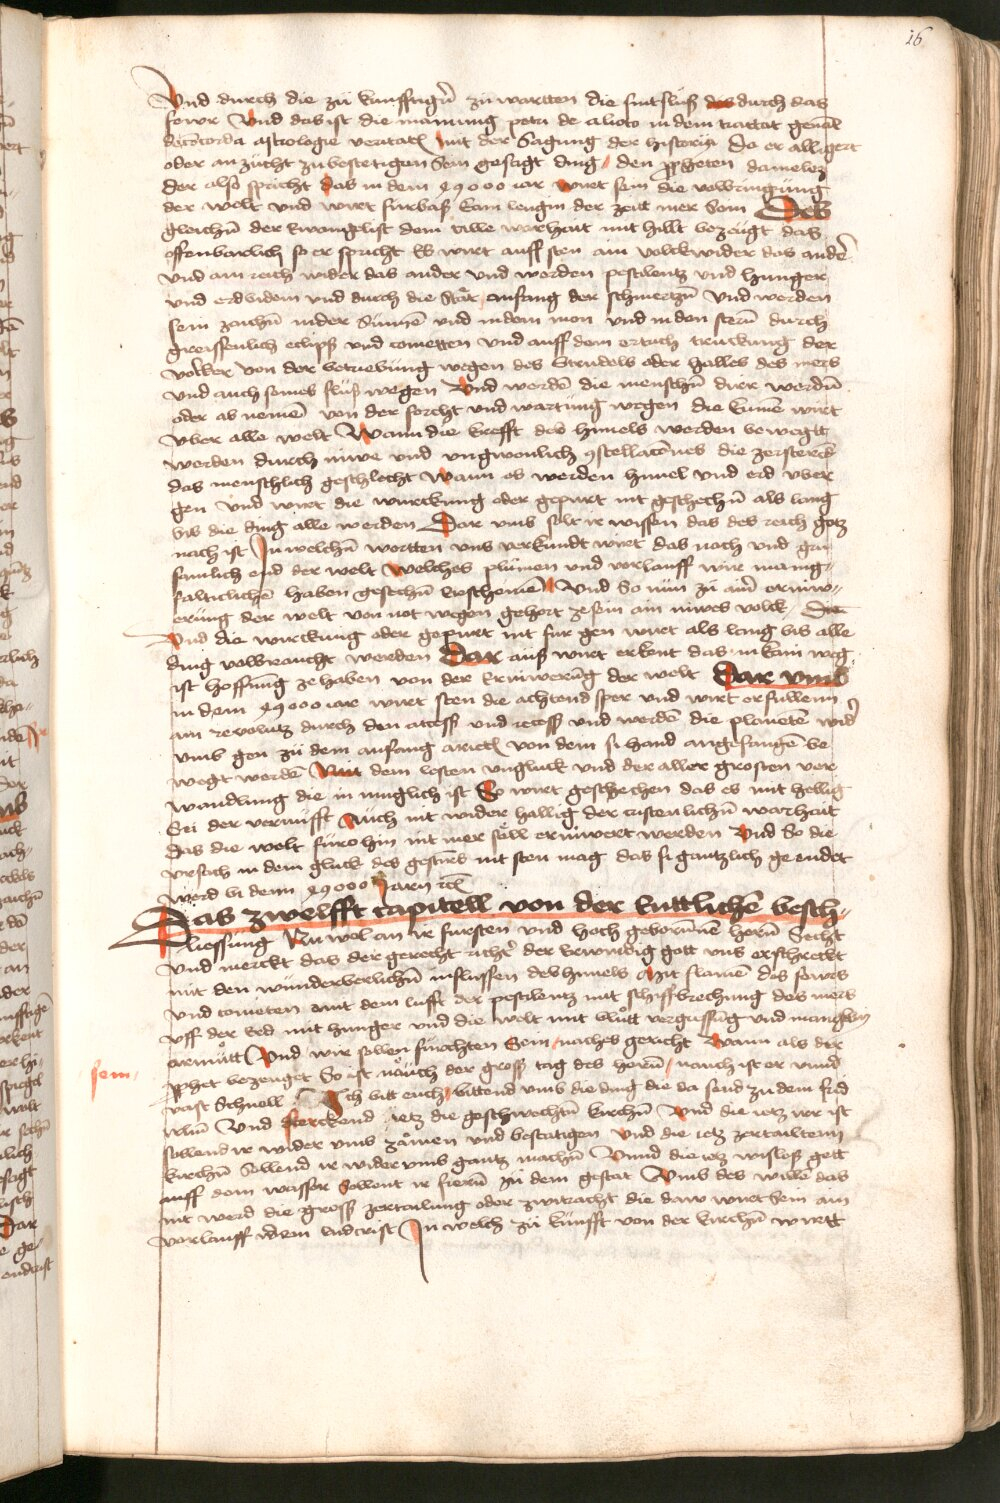 16
Vnd durch die zů kunfftigū zu wartten die sintfluß das durch das
fewr Vnd das ist die mainung petri de aliaco in dem tractat genāt
de cōcordā astrologie veritatꝭ mit der sagung der historiā da er alligert
oder an zücht zu bestetigen sein gesagt ding / den ꝓpheten danielez
der also spricht das in dem 19000 iar wirt sein die volbringung
der welt Vnd wirt fürbaß kain lengin der zeitt mer sein Des
gleichū der Ewangelist dem alle warhait mit hillt bezeügt das
offenbarlich so er spricht Es wirt auff sten ain volck wider das ander
Vnd ain reich wider das ander vnd werden pestilentz vnd hunger
vnd erdbidem vnd durch die stått anfang der schmertzū Vnd werden
sein zaichū in der Sunnē vnd in dem mon vnd in den sternē durch
greüssenlich eclipß vnd cometten Vnd auff dem ertrich truckung der
volcker von der betriebung wegen des Strudels oder halles des mers
vnd auch seines fluß wegen Vnd werdē die menschū dürr werdū
oder ab nemē von der forcht vnd wartung wegen die kumē wirt
vber alle welt Wann die krefft des himels werden bewegtt
werden durch niwe vnd vngwonlich ꝯstellacōnes die zersterck
das menschlich geschlecht Wann es werden himel vnd erd vber
gen Vnd wirt die wurckung oder gepurt nit geschechū als lang
bis die ding alle werden Dar vmb solt ir wissen das des reich gotz
nach ist In welchū wortten vns verkundt wirt das nach vnd grü
samlich end der welt Welches plümen vnd vorlauff wir manig-
faltiklichē haben gesechū erscheinē Vnd So nün zů ainē erniw-
erung der welt von not wegen gehört ze sein ain niwes volck / Die
Vnd die wirckung oder gepurt nit für gen wirt als lang bis alle
ding volbraucht werden Dar auß wirt erkent das in kain weg
ist hoffnūg ze haben von der Erniwerūg der welt Dar vmb
in dem 19000 iar wirt sten die achtend sper vnd wirt erfüllenn
ain revolutz durch den access vnd recess vnd werdē die planetē wider
vmb gen zů dem anfang arietꝭ von dem si hand angefangē be
wegt werdē Mit dem lesten vngluck vnd der aller grosten ver
wandlung die in muglich ist So wirt geschechen das es mit hellig
Sei der vernufft Auch nit wider hallig der cristenlichū warhait
das die welt fürohin nit mer söll erniwert werden Vnd So die
vrsach in dem gluck des gestirs nit sten mag das si gantzlich geendet
werd bi denn 19000 Jarn ꝛcꝭ
Das zwelfft capitell von der kuttlichē besch-
liessung Nu wol an ir fursten vnd hoch gebornnē herū Secht
Vnd merckt das der gerecht richtꝰ der Erwirdig gott vns erschreckt
mit den wunderberlichū influssen des himels Mit flamē des fewrs
vnd cometen mit dem lufft der pestilentz mit schiffbrechung des mers
vff der Erd mit hunger vnd die welt mit blůtt vergiessūg vnd mangklin
armütt Vnd wir sollen fürchten Sein / naches gericht Wann als der
sein /
ꝓphet bezeuget So ist nåüch der groß tag des herrū / nauch ist er vnnd
vast Schnell Ich bitt euch / bittend vmb die ding die da seind zu dem frid
irlm̄ Vnd sterckend ietz die geschwechtū kirchū Vnd die ietz irr ist
sollend ir wider vmb zåimen vnd bestatigen Vnd die ietz zertailtenn
kirchū sollend ir wider vmb gantz machū Vnnd die ietz wislos gett
auff dem wasser Sollent ir fierū zů dem gestat Vmb des willē das
nit werd die groß zertailung oder zwitracht die daw wirt sein ain
vorlauff dem endcrist In welch zů künfft von der kirchū wirtt